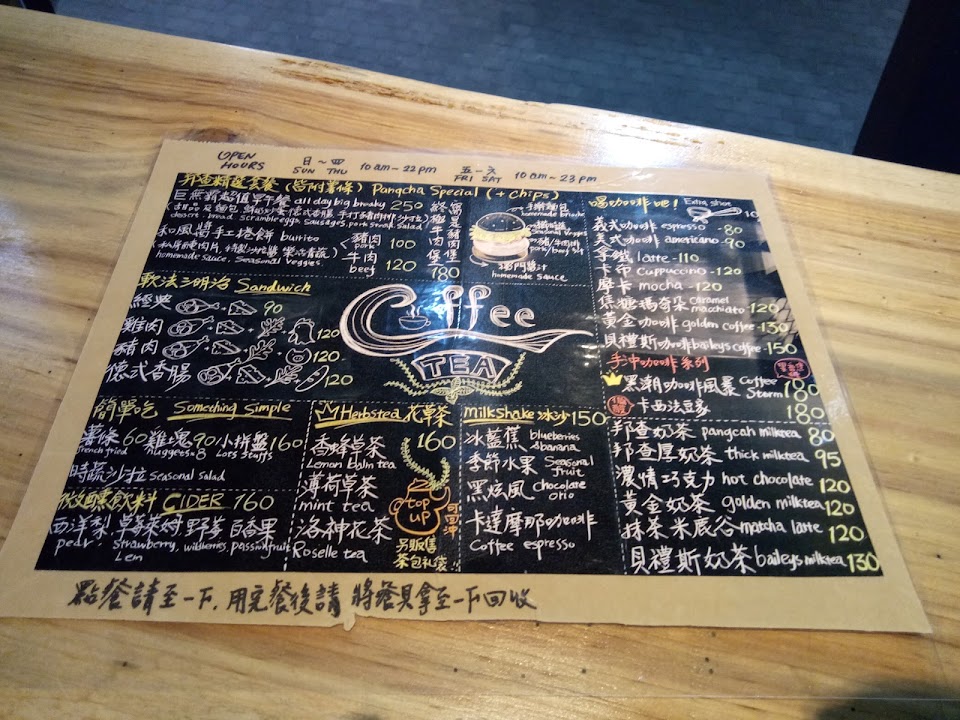 OPEN HOURS
日~四 SUN THU 10am~22pm
五-六 FRI SAT 10am~23pm
(皆附薯條) Pangcha Special (+chips)
巨無霸超值早午餐 all day big breaky 250
和風醬手工捲餅 burrito
homemade sauce, Seasonal veggies.
豬肉 pork 100
牛肉 beef 120
180
手工 麵包 homemade brioche
Seasonal veggies
豬/牛肉 pork/beef
獨門醬汁 homemade sauce
軟法三明治 Sandwich
經典 90
雞肉 120
豬肉 120
德式香腸 120
Coffee
TEA
簡單吃 Something Simple
薯條 60 french fried
雞塊 90 nuggets×8
小拼盤 160
時蔬沙拉 Seasonal salad
微醺飲料 CIDER 160
西洋梨 草莓萊姆 野莓 百香果
pear. Strawberry, wildberries, passionfruit
Lem
Herbstea 花草茶
160
香蜂草茶
Lemon balm tea
薄荷草茶
mint tea
洛神花茶
Roselle tea
TOP UP
可回沖
另販售
茶包礼袋!
Milkshake 冰沙 150
冰藍蕉 blueberries &banana
季節水果 Seasonal fruit
黑炫風 chocolate orio
卡達摩那咖啡
Coffee espresso
喝咖啡吧! Extra shot
義式咖啡 espresso -80
美式咖啡 americano -90
拿鐵 latte -110
卡布 Cappuccino -120
摩卡 mocha -120
焦糖瑪奇朵 caramel macchiato 120
黃金咖啡 golden coffee -130
貝禮斯咖啡 baileys coffee -150
手沖咖啡系列
黑潮咖啡風暴 Coffee Storm 180
卡西法豆豪 180
邦查奶茶 pangcah milktea 80
邦查厚奶茶 thick milktea 95
濃情巧克力 hot chocolate 120
黃金奶茶 golden milktea 120
抹茶米底谷 matcha latte 120
貝禮斯奶茶 baileys milktea 130
點餐請至一下,用完餐後請 將餐具拿至一下回收